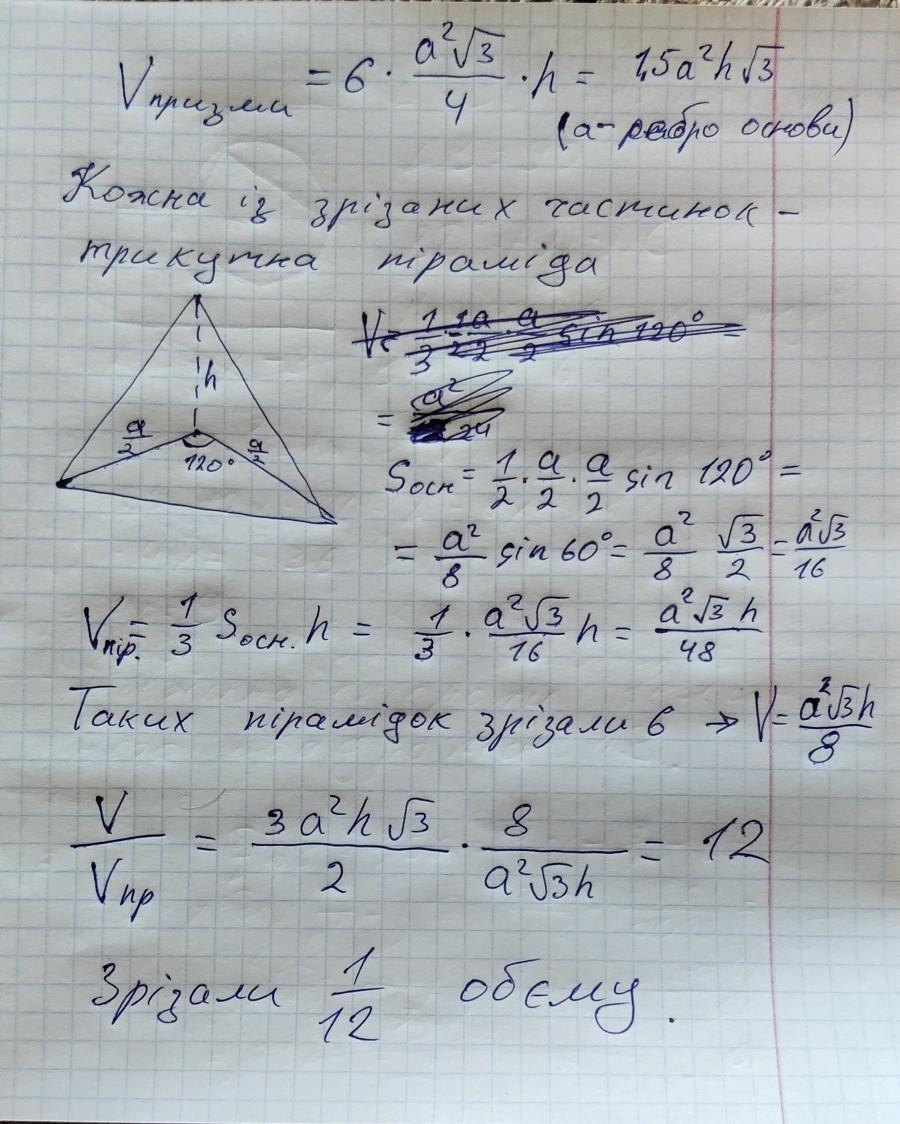 Vпризми = 6 · a²√3/4 · h = 1,5a²h√3
(a - ребро основи)
Кожна із зрізаних частинок -
трикутна піраміда
h
a/2 a/2
120°
Sосн = 1/2 · a/2 · a/2 sin 120° =
= a²/8 sin 60° = a²/8 √3/2 = a²√3/16
Vпір. = 1/3 Sосн. h = 1/3 · a²√3/16 h = a²√3 h/48
Таких пірамідок зрізали 6 → V = a²√3h/8
V/Vпр = 3a²h√3/2 · 8/a²√3h = 12
Зрізали 1/12 обєму.